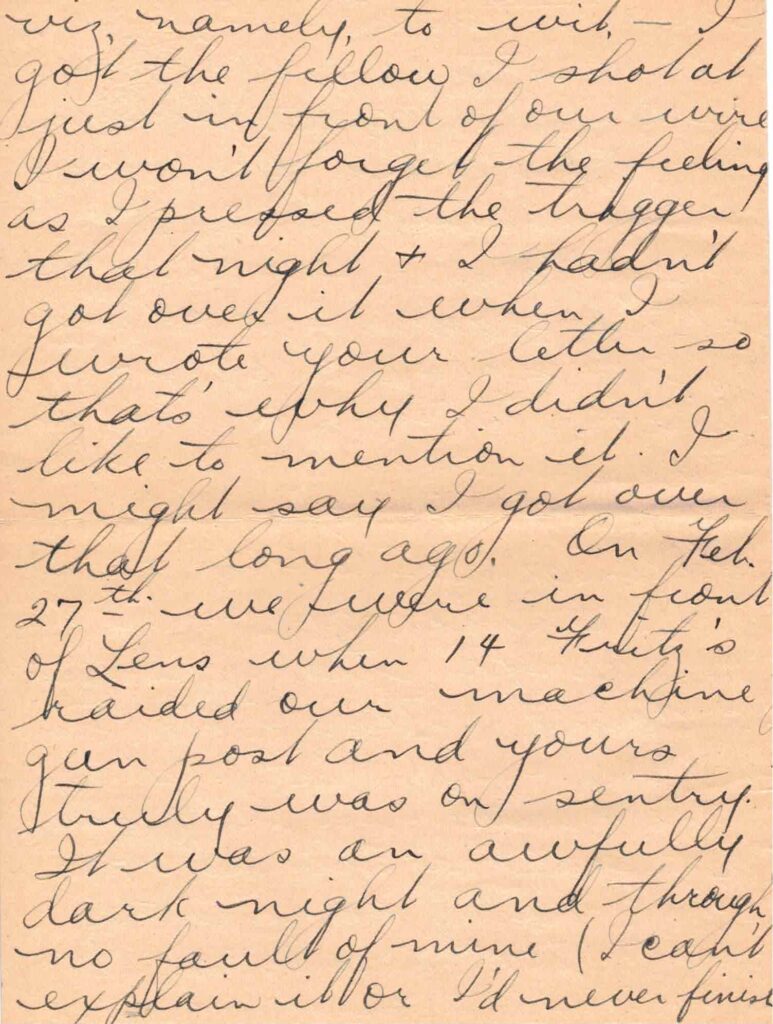 viz, namely, to wit, – I
got the fellow I shot at
just in front of our wire
I won't forget the feeling
as I pressed the trigger
that night + I hadn't
got over it when I
wrote your letter so
that's why I didn't
like to mention it. I
might say I got over
that long ago. On Feb.
27th. we were in front
of Lens when 14 Fritz's
raided our machine
gun post and yours
truly was on sentry.
It was an awfully
dark night and through
no fault of mine (I can't
explain it or I'd never finish